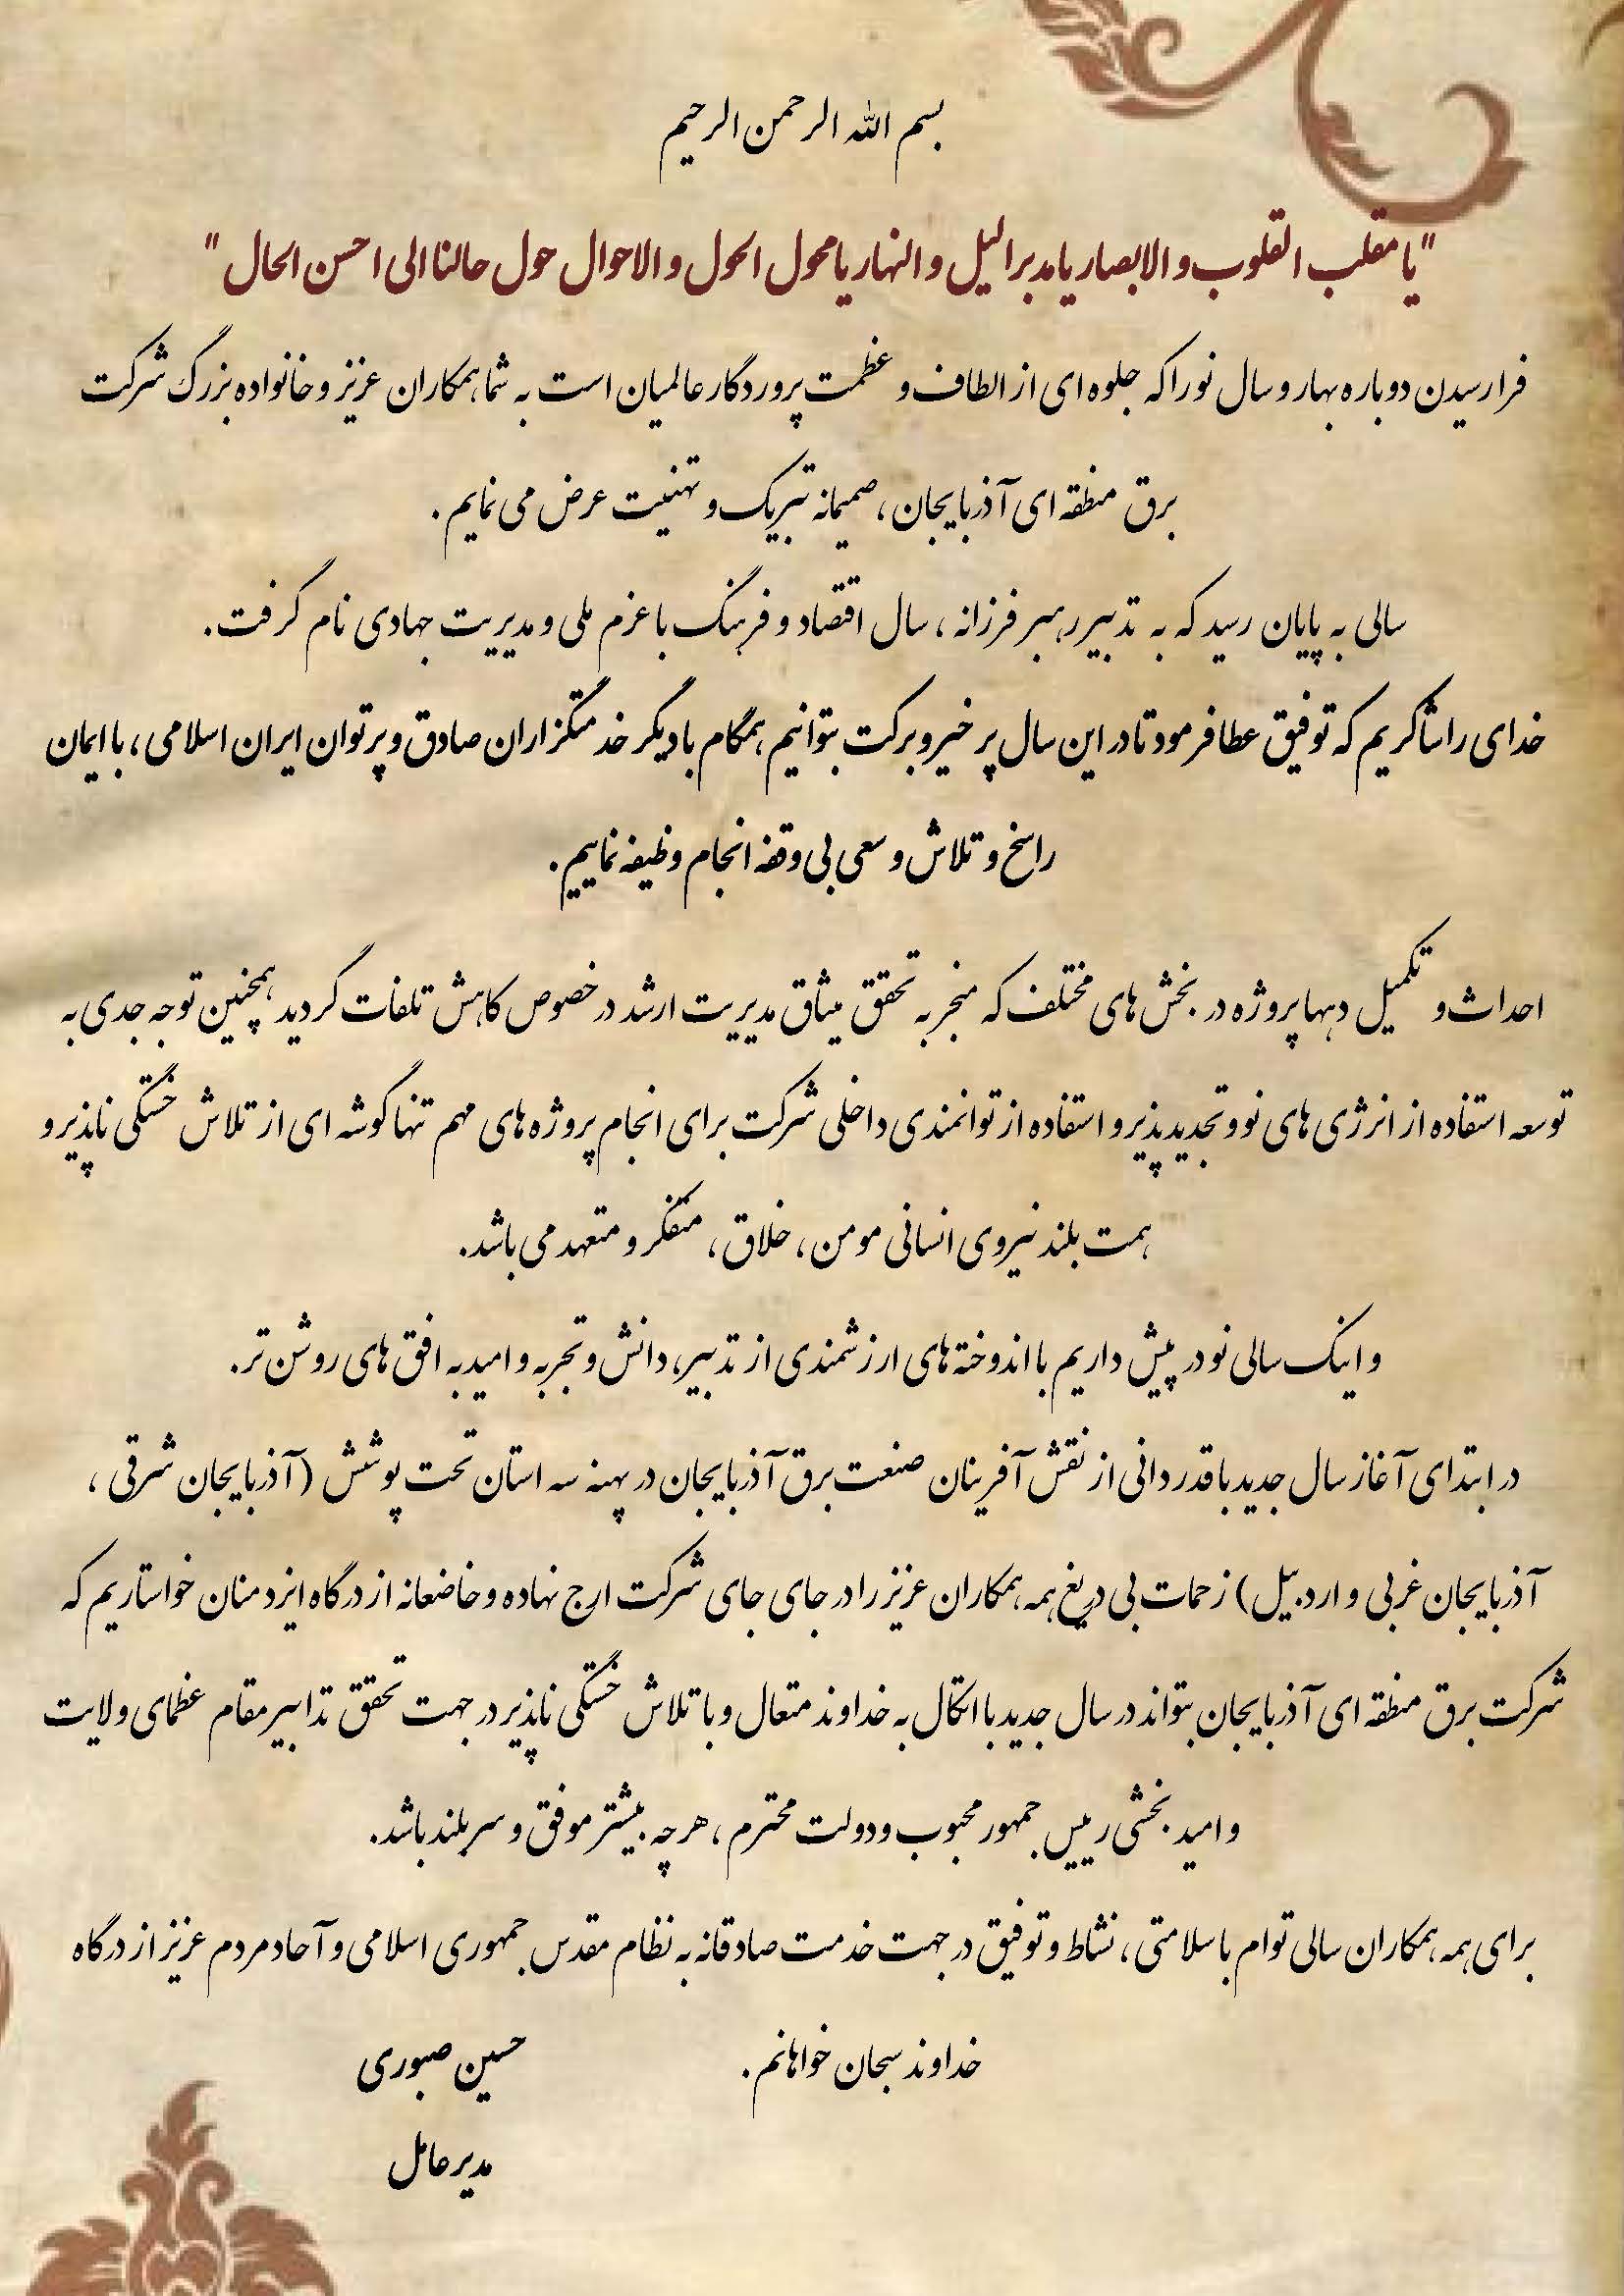 بسم الله الرحمن الرحیم
"یا مقلب القلوب و الابصار یا مدبر الیل و النهار یا محول الحول و الاحوال حول حالنا الی احسن الحال"
فرا رسیدن دوباره بهار و سال نو را که جلوه ای از الطاف و عظمت پروردگار عالمیان است به شما همکاران عزیز و خانواده بزرگ شرکت
برق منطقه ای آذربایجان، صمیمانه تبریک و تهنیت عرض می نمایم.
سالی به پایان رسید که به تدبیر رهبر فرزانه، سال اقتصاد و فرهنگ با عزم ملی و مدیریت جهادی نام گرفت.
خدای را شاکریم که توفیق عطا فرمود تا در این سال پر خیر و برکت بتوانیم همگام با دیگر خدمتگزاران صادق و پرتوان ایران اسلامی، با ایمان
راسخ و تلاش و سعی بی وقفه انجام وظیفه نماییم.
احداث و تکمیل دهها پروژه در بخش های مختلف که منجر به تحقق میثاق مدیریت ارشد در خصوص کاهش تلفات گردید همچنین توجه جدی به
توسعه استفاده از انرژی های نو و تجدید پذیر و استفاده از توانمندی داخلی شرکت برای انجام پروژه های مهم تنها گوشه ای از تلاش خستگی ناپذیر و
همت بلند نیروی انسانی مومن، خلاق، متفکر و متعهد می باشد.
و اینک سالی نو در پیش داریم با اندوخته های ارزشمندی از تدبیر، دانش و تجربه و امید به افق های روشن تر.
در ابتدای آغاز سال جدید با قدردانی از نقش آفرینان صنعت برق آذربایجان در پهنه سه استان تحت پوشش (آذربایجان شرقی،
آذربایجان غربی و اردبیل) زحمات بی دریغ همه همکاران عزیز را در جای جای شرکت ارج نهاده و خاضعانه از درگاه ایزد منان خواستاریم که
شرکت برق منطقه ای آذربایجان بتواند در سال جدید با اتکال به خداوند متعال و با تلاش خستگی ناپذیر در جهت تحقق تدابیر مقام عظمای ولایت
و امید بخشی رییس جمهور محبوب و دولت محترم، هر چه بیشتر موفق و سربلند باشد.
برای همه همکاران سالی توام با سلامتی، نشاط و توفیق در جهت خدمت صادقانه به نظام مقدس جمهوری اسلامی و آحاد مردم عزیز از درگاه
خداوند سبحان خواهانم.
حسین صبوری
مدیر عامل